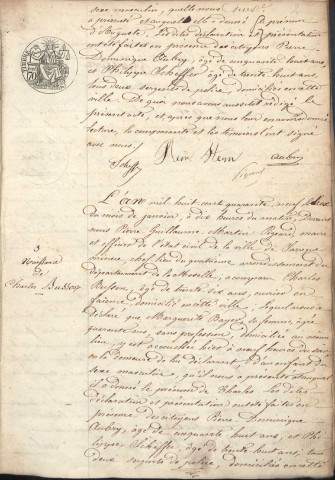 sexe masculin, quelle nous
a présenté auquel elle a donné le prénom
d'Auguste. Les dites déclaration et présentation
ont été faites en présence des citoyens Pierre
Dominique Aubry, âgé de cinquante huit ans,
et Philippe Scheffer âgé de trente huit ans,
tous deux sergents de police, domiciliés en cette
ville. De quoi nous avons aussitôt rédigé le
présent acte, et après que nous leur en avons
lecture, la comparante et les témoins l'ont signé
avec nous.
Scheffer Aubry
L'an mil huit cent quarante neuf, le
du mois de janvier, à dix heures du matin, devant
nous Pierre Guillaume Martin Rigard, maire
et officier de l'état civil de la ville de Sarregue
mines, chef lieu du quatrième arrondissement du
département de la Moselle, a comparu Charles
Busson, âgé de trente six ans, ouvrier en
faïence, domicilié en cette ville, lequel nous a
déclaré que Marguerite Bayer, sa femme, âgée
quarante ans, sans profession, domiciliée au même
lieu, y est accouchée hier à neuf heures du soir
en la demeure de lui déclarant, d'un enfant du
sexe masculin, qu'il nous a présenté et auquel
il a donné le prénom de Charles. Les dites
déclaration et présentation ont été faites en
présence des citoyens Pierre Dominique
Aubry, âgé de cinquante huit ans, et Phi
lippe Scheffer, âgé de trente huit ans, tous
deux sergents de police, domiciliés en cette
3
Naissance
de
Charles Busson